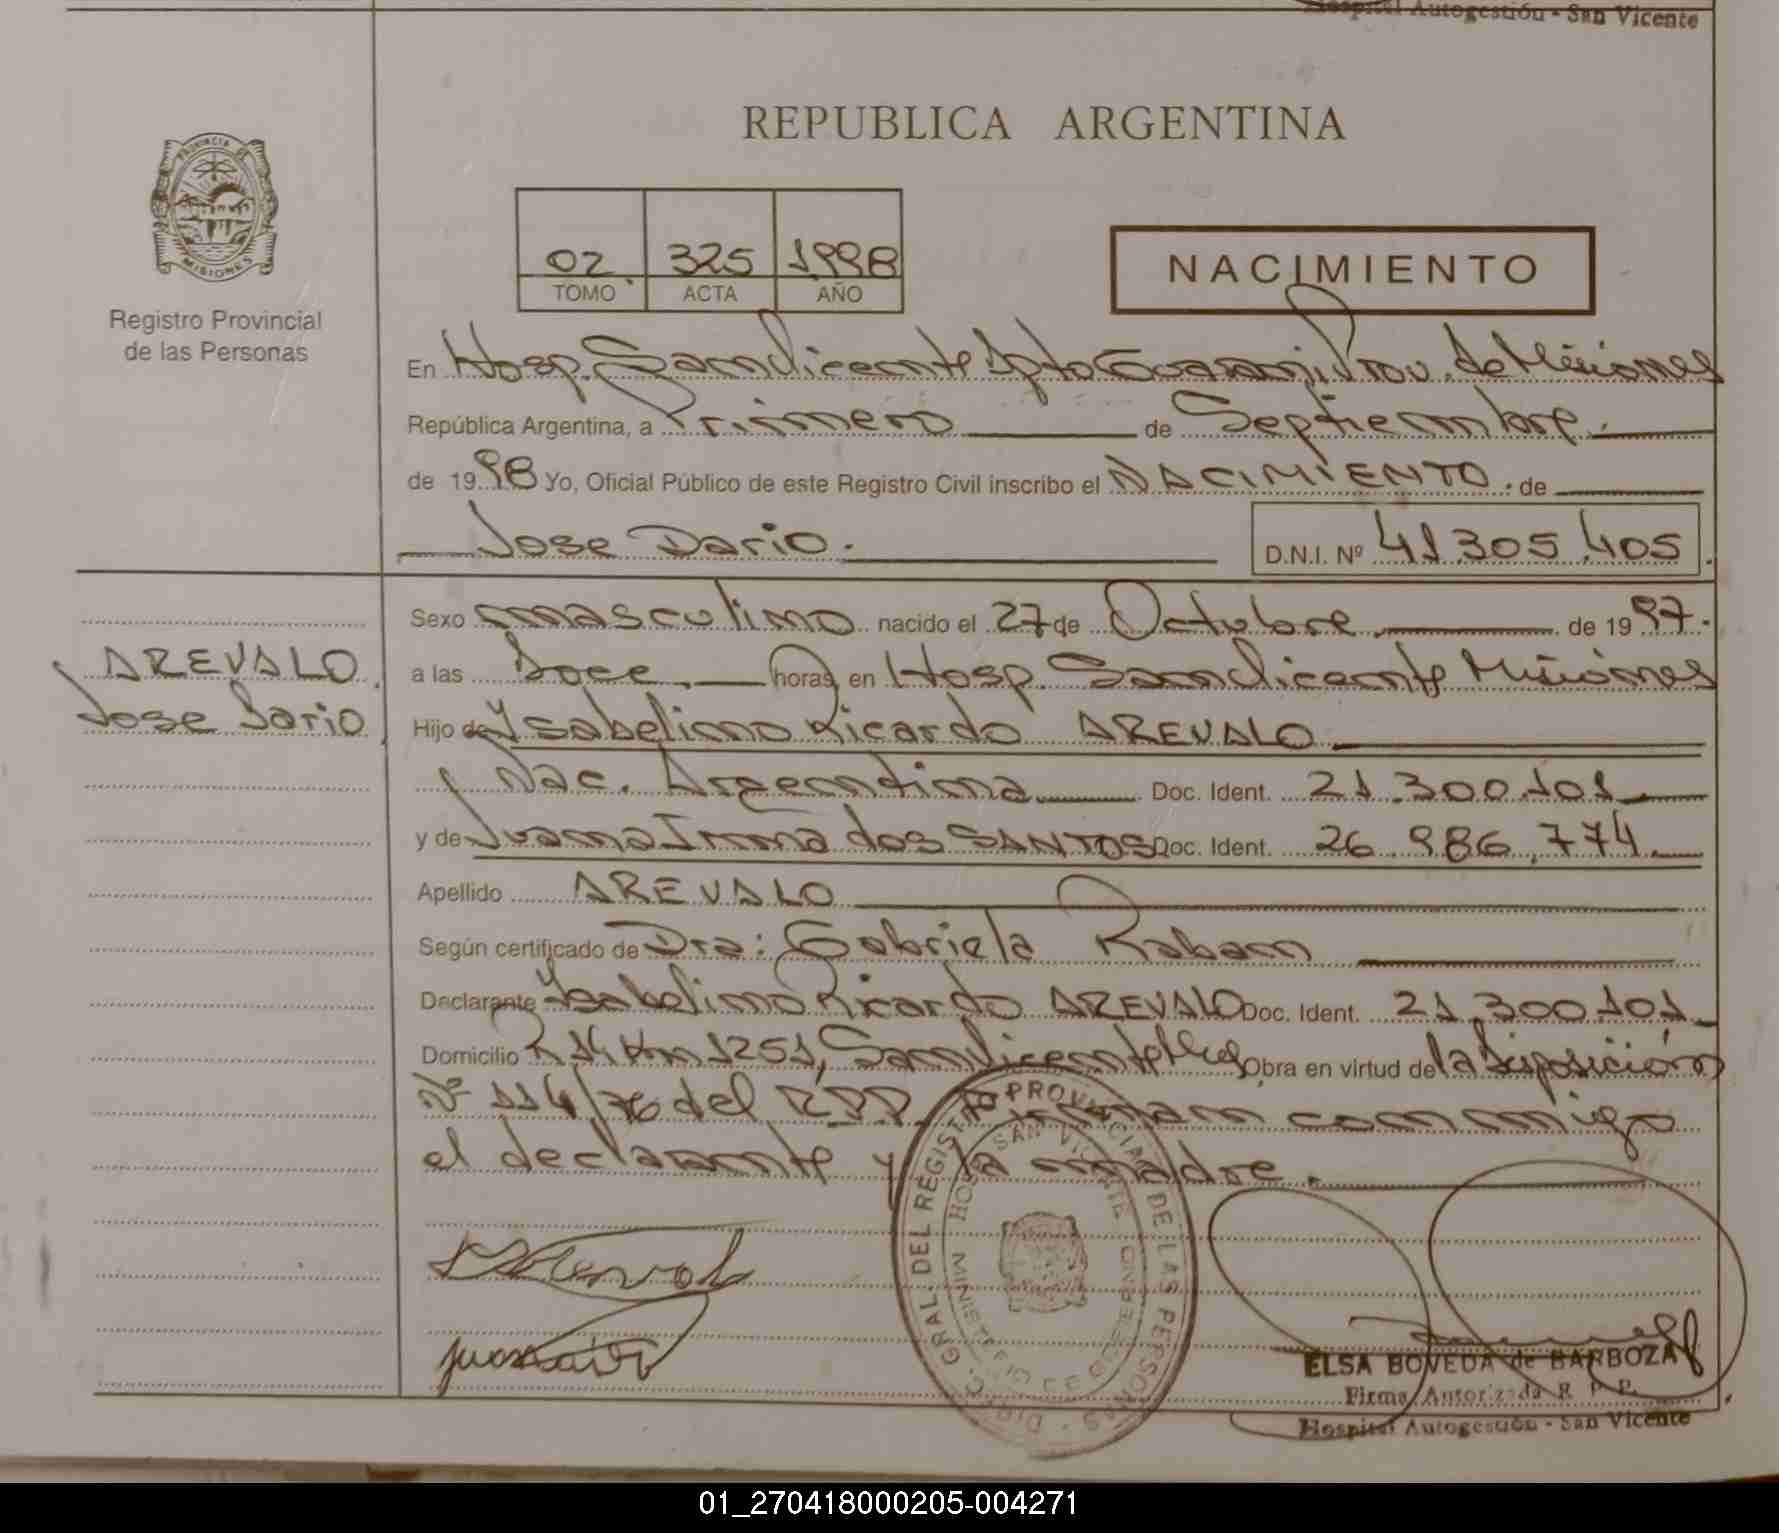 Hospital Autogestión - San Vicente
REPUBLICA ARGENTINA
PROVINCIA DE
MISIONES
Registro Provincial
de las Personas
02. 325 1998
TOMO ACTA AÑO
NACIMIENTO
En Hosp. San Vicente Dpto Guarani, Prov. de Misiones
República Argentina, a Primero de Septiembre.
de 1998 Yo, Oficial Público de este Registro Civil inscribo el NACIMIENTO. de
Jose Dario. D.N.I. Nº 41.305.405
AREVALO
Jose Dario
Sexo masculino nacido el 27 de Octubre de 1997.
a las Doce. horas, en Hosp. San Vicente Misiones
Hijo de Ysabelino Ricardo AREVALO
Nac. Argentina Doc. Ident. 21.300.101
y de Juana Irma dos SANTOS Doc. Ident. 26.986.774.
Apellido AREVALO
Según certificado de Dra: Gabriela Raban
Declarante Ysabelino Ricardo AREVALO Doc. Ident. 21.300.101
Domicilio R 14 Km 1251, San Vicente Mnes Obra en virtud de la Disposición
Nº 114/76 del RPP. Firman conmigo
el declarante y la madre.
DIREC. GRAL. DEL REGISTRO PROVINCIAL DE LAS PERSONAS
HOSP. SAN VICENTE
MINISTERIO DE GOBIERNO
ELSA BOVEDA de BARBOZA
Firma Autorizada R P P.
Hospital Autogestión - San Vicente
01_270418000205-004271